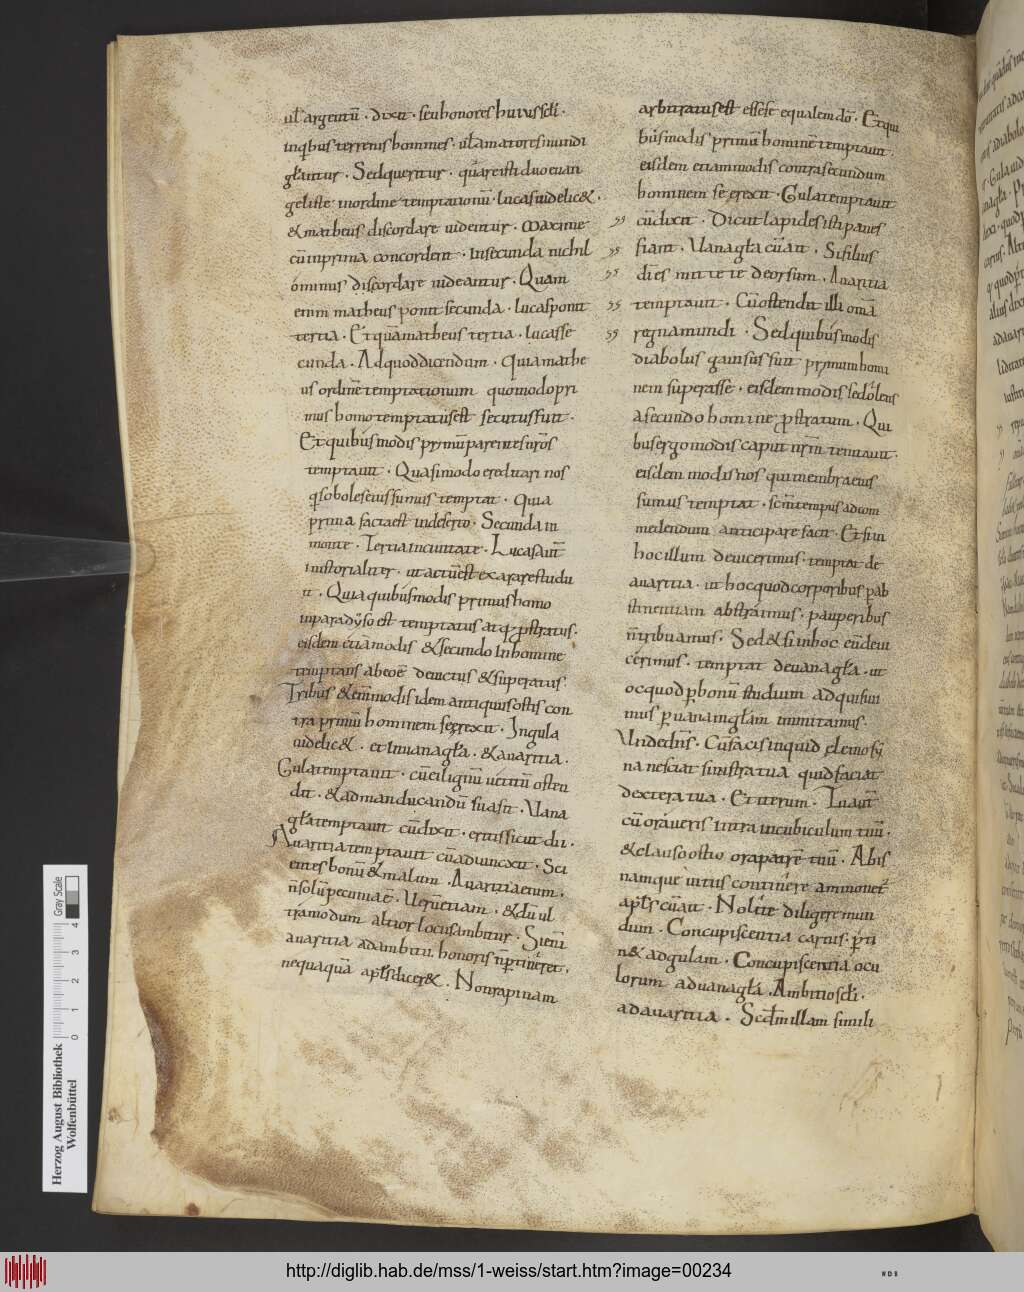 ul̄ argentū · dixit · seu honores huius sc̄li ·
in qͥbus terrenis homines · ul̄ amatores mundi
gl̄antur · Sed queritur · quare isti duo euan
geliste in ordine temptationū · lucas uidelic& ·
& matheus discordare uidentur · maxime
cū in prima concordent · In secunda nichil
óminus discordare uideantur · Quam
enim matheus ponit secunda · lucas ponit
tertia · Et quā matheus tertia · lucas se
cunda · Ad quod dicendum · Quia mathe
us ordinē temptationum quomodo pri
mus homo temptatus est secutus fuit ·
Et quibus modis primū parentes nr̄os
temptauit · Quasi modo ereditari nos
qͥ soboles eius sumus temptat · Quia
prima facta est in deserto · Secunda in
monte · Tertia in ciuitate · Lucas aut̄
instorialiter · ut actū est exarare studu
it · Quia quibus modis primus homo
in paradyso est temptatus atq; ꝓstratus ·
eisdem etiā modis & secundo in homine
temptans ab eoē deuictus & superatus
Tribus & enī modis idem antiquus ostis con
tra primū hominem se erexit · In gula
uidelic& · et in uana gl̄a · & auaritia ·
Gula temptauit · cū ei lignū uetitū osten
dit · & ad manducandū suasit · Uana
gl̄a temptauit cū dixit · eritis sicut dii ·
Auaritia temptauit cū adiunxit · Sci
entes bonū & malum · Auaritia enim ·
n̄ solū pecuniae · Uerūetiam · & dū ul
tra modum altior locus ambitur · Si enī
auaritia ad ambitū honoris n̄ ꝑtineret ·
nequaquā apl̄s dicer& · Non rapinam
arbitratus est esse se equalem dō · Et qui
bus modis primū hominē temptauit ·
eisdem etiam modis contra secundum
hominem se erexit · Gula temptauit
cū dixit · Dic ut lapides isti panes
fiant · Uana gl̄a cū ait · Si filius
dī es mitte te deorsum · Auaritia
temptauit · Cū ostendit illi omā
regna mundi · Sed quibus modis
diabolus gauisus fuit primum homi
nem superasse · eisdem modis se dolens
a secundo homine ꝓstratum · Qui
bus ergo modis caput nr̄m temtauit ·
eisdem modis nos qui membra eius
sumus temptat · s& m̄ tempus ad com
medendum anticipare facit · Et si in
hoc illum deuicerimus · temptat de
auaritia · ut hoc quod corporibus ꝑ ab
stinentiam abstraimus · pauperibus
n̄ tribuamus · Sed & si in hoc eū deui
cerimus · temptat de uana gl̄a · ut
oc quod ꝑ bonū studium adquisiui
mus ꝑ uanam gl̄am inmitamus ·
Unde dn̄s · Cū facis inquid elemosy
na nesciat sinistra tua quid faciat
dextera tua · Et iterum · Tu aut̄
cū oraueris intra in cubiculum tuū ·
& clauso ostio ora patrē tuū · Ab is
namque uitiis continere ammonet᷑
apl̄s cū ait · Nolite diligere mun
dum · Concupiscentia carnis · ꝑti
n& ad gulam · Concupiscentia ocu
lorum ad uana gl̄a · Ambitio sc̄li ·
ad auaritia · Secd̄m illam simili
Herzog August Bibliothek
Wolfenbüttel
0 1 2 3 4
Gray Scale
http://diglib.hab.de/mss/1-weiss/start.htm?image=00234